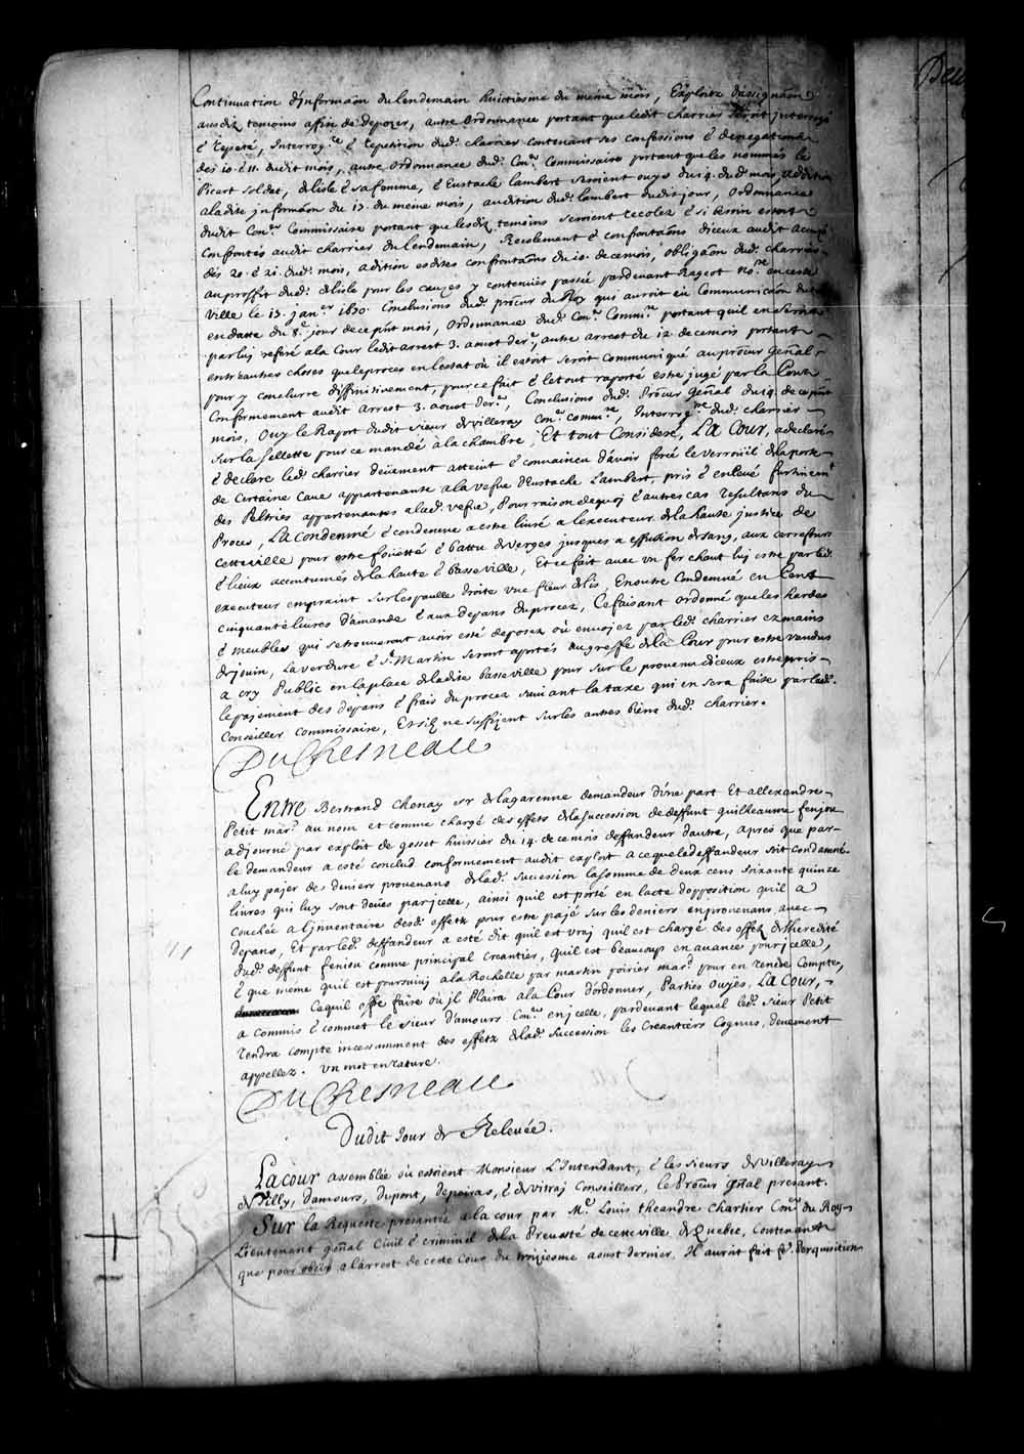 Continuation d'informaõn du lendemain huictiesme du mesme mois, Exploitz d'assignaõn
ausdz temoins affin de deposer, autre Ordonnance portant que ledit charrier seroit interrogé
é repeté, Interrog.re é repetition dud. charrier contenant ses confessions é denegations
des 10. é 11. dudit mois, autre ordonnance dud. Con.er Commissaire portant que les nommés le
Picart soldat, delisle é sa femme, é Eustache lambert seroient ouys du 14. dud. mois, addition
a ladite jnformãon du 17. du meme mois, audition dud. lambert dudit jour, Ordonnance
dudit Con.er Commissaire portant que lesdz temoins seroient recolez é si besoin estoit
Confrontés audit charrier du lendemain, Recolement é confrontaõns d'iceux audit accusé
des 20. é 21. dud. mois, adition esdites confrontaõns du 10. de ce mois, obligaõn dud. charrier
au proffit dud. delisle pour les causes y contenües passée pardevant Rageot no.re en cette
Ville le 13. Jan.er 1680. Conclusions dud. procur. du Roy qui auroit eu Communicaõn du
en datte du 8.e jour de ce p̃nt mois, Ordonnance dud. Con.er Commi.re portant qu'il en seroit
par luy referé a la Cour ledit arrest 3. aoust der.er, autre arrest du 12 de ce mois portant
entr'autres choses que le proces en l'estat où il estoit seroit Communiqué au proc̃ur Gen̄al
pour y conclurre diffinitivement, pour ce fait é le tout raporté estre jugé par la Cour
Conformement audit Arrest 3. aoust der.er, Conclusions dud. Procur Gen̄al du 14. de ce p̃nt
mois, Ouy le Raport dudit sieur de villeray Con.er comm.re, Interrog.re dud. charrier
sur la sellette pour ce mandé à la chambre; Et tout Consideré, La Cour, a declaré
é declare led. charrier deuëment atteint é convaincu d'avoir forcé le verrouil de la porte
de Certaine Cave appartenante a la vefve d'Eustache Lambert, pris é enlevé furtivem.t
des Peltries appartenantes a lad. vefve, Pour raison dequoy é autres cas resultans du
Proces, La Condemné é condemne a estre livré a l'executeur de la haute justice de
cette ville pour estre foüetté é battu de verges jusques a effusion de sang, aux carrefours
é lieux accoutumés de la haute é basse Ville, Et ce fait avec un fer chaut luy estre par led.
executeur empraint sur l'espaulle droite une fleur de lis, En outre Condemné en Cent
cinquante livres d'amande é aux depans du procez, Ce faisant ordonné que les hardes
é meubles qui se trouveront avoir esté deposez où envoyez par led. charrier ez mains
de jouin, La verdure é S.t Martin seront aportés au greffe de la Cour pour estre vendus
a cry Public en la place de ladite basse ville pour sur le provenu d'iceux estre pris
le payement des depans é frais du procez suivant la taxe qui en sera faite par led.
Conseiller commissaire, Et s'ilz ne suffisent sur les autres biens dud. charrier.
DuChesneau
Entre Bertrand Chenay sr de lagarenne demandeur d'une part Et allexandre
Petit mar.d au nom et comme chargé des effets de la succession de deffunt guilheaume fenjou
adjourné par exploit de gosset huissier du 14. de ce mois deffandeur d'autre, apres que par
le demandeur a esté conclud conformement audit exploit a ce que le deffandeur soit condamné
a luy payer des deniers provenans de lad. succession la somme de deux cens soixante quinze
livres qui luy sont deües par jcelle, ainsi qu'il est porté en l'acte d'opposition qu'il a
couchée a l'jnventaire desd. effetz pour estre payé sur les deniers en provenans, avec
depans, Et par led. deffandeur a esté dit qu'il est vray qu'il est chargé des effetz de l'heredité
dud. deffunt feniou comme principal Creantier, Qu'il est beaucoup en avance pour jcelle,
é que meme qu'il est poursuivj a la Rochelle par martin poirier mar.d pour en rendre Compte,
Ce qu'il offre faire où jl Plaira a la Cour d'ordonner, Parties Ouyes, La Cour,
a commis é commet le sieur d'amours Con.er en jcelle, pardevant lequel led. sieur Petit
rendra compte incessamment des effetz de lad. succession les Creantiers Cognus, deuëment
appellez. Un mot en rature.
DuChesneau
Dudit Jour de Relevée.
La cour assemblée où estoient Monsieur L'Intendant, é les sieurs de villeray
de Tilly, damours, dupont, depeiras, é de vitray Conseillers, le Procur gñal present.
Sur la Requeste presantée a la cour par M.e Louis theandre Chartier Con.er du Roy
Lieutenant gen̄al Civil é criminel de la Prevosté de cette ville de Quebec, Contenant
que pour obeir a l'arrest de cette Cour du troisiesme aoust dernier, Jl auroit fait Perquisition